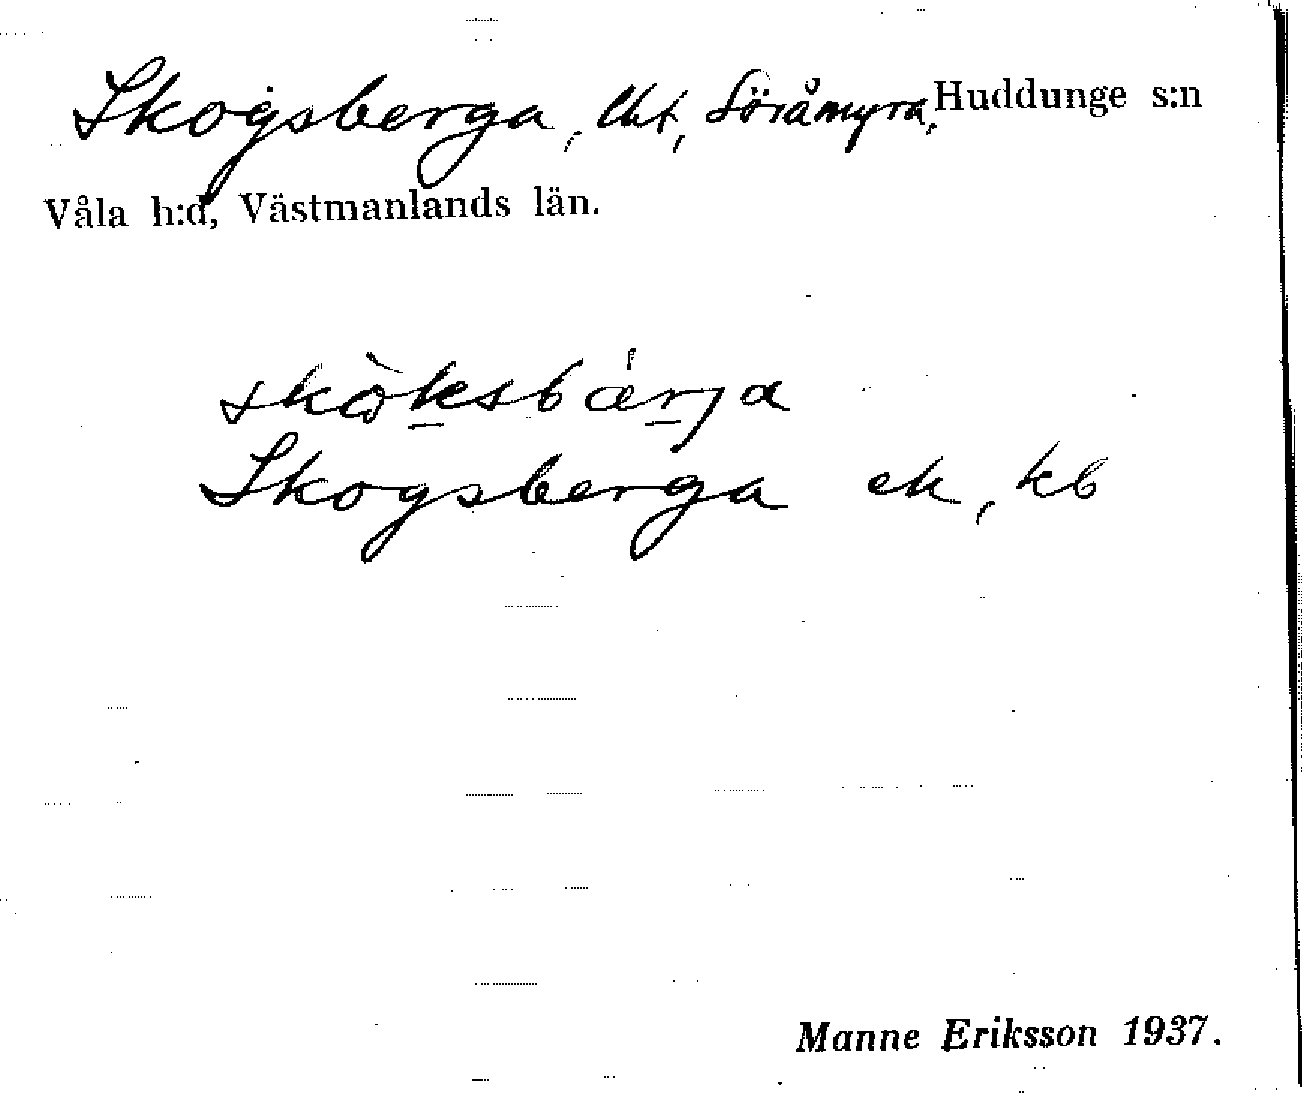 Skogsberga, lht, Söråmyra, Huddunge s:n
Våla h:d, Västmanlands län.
Skogsberga ek, kb
Manne Eriksson 1937.